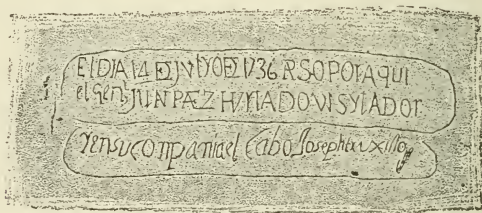 El DIA 14 DE JVLYO DE 1736 PASO POR AQUI
el Genl JUN PAEZ HVRTADO VISYTADOR
Y en su conpania el Cabo Joseph truxillo